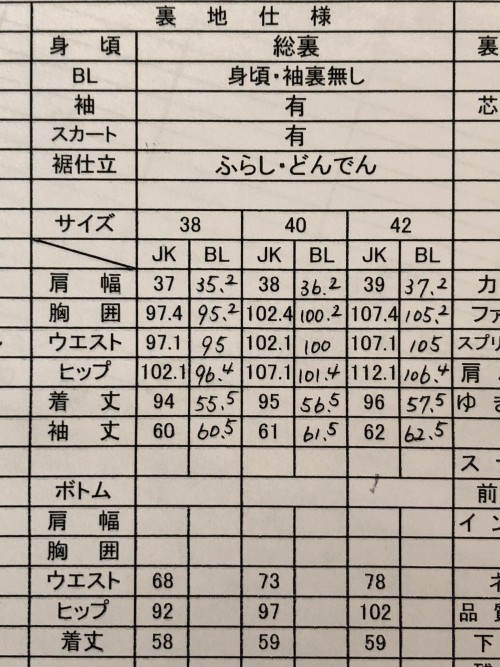 裏地仕様
身頃 総裏 裏
BL 身頃・袖裏無し
袖 有 芯
スカート 有
裾仕立 ふらし・どんでん
サイズ 38 40 42
JK BL JK BL JK BL
肩幅 37 35.2 38 36.2 39 37.2 カ
胸囲 97.4 95.2 102.4 100.2 107.4 105.2 ファ
ウエスト 97.1 95 102.1 100 107.1 105 スプリ
ヒップ 102.1 96.4 107.1 101.4 112.1 106.4 肩
着丈 94 55.5 95 56.5 96 57.5 ゆき
袖丈 60 60.5 61 61.5 62 62.5
ス
ボトム 前
肩幅 イン
胸囲
ウエスト 68 73 78 ネ
ヒップ 92 97 102 品質
着丈 58 59 59 下